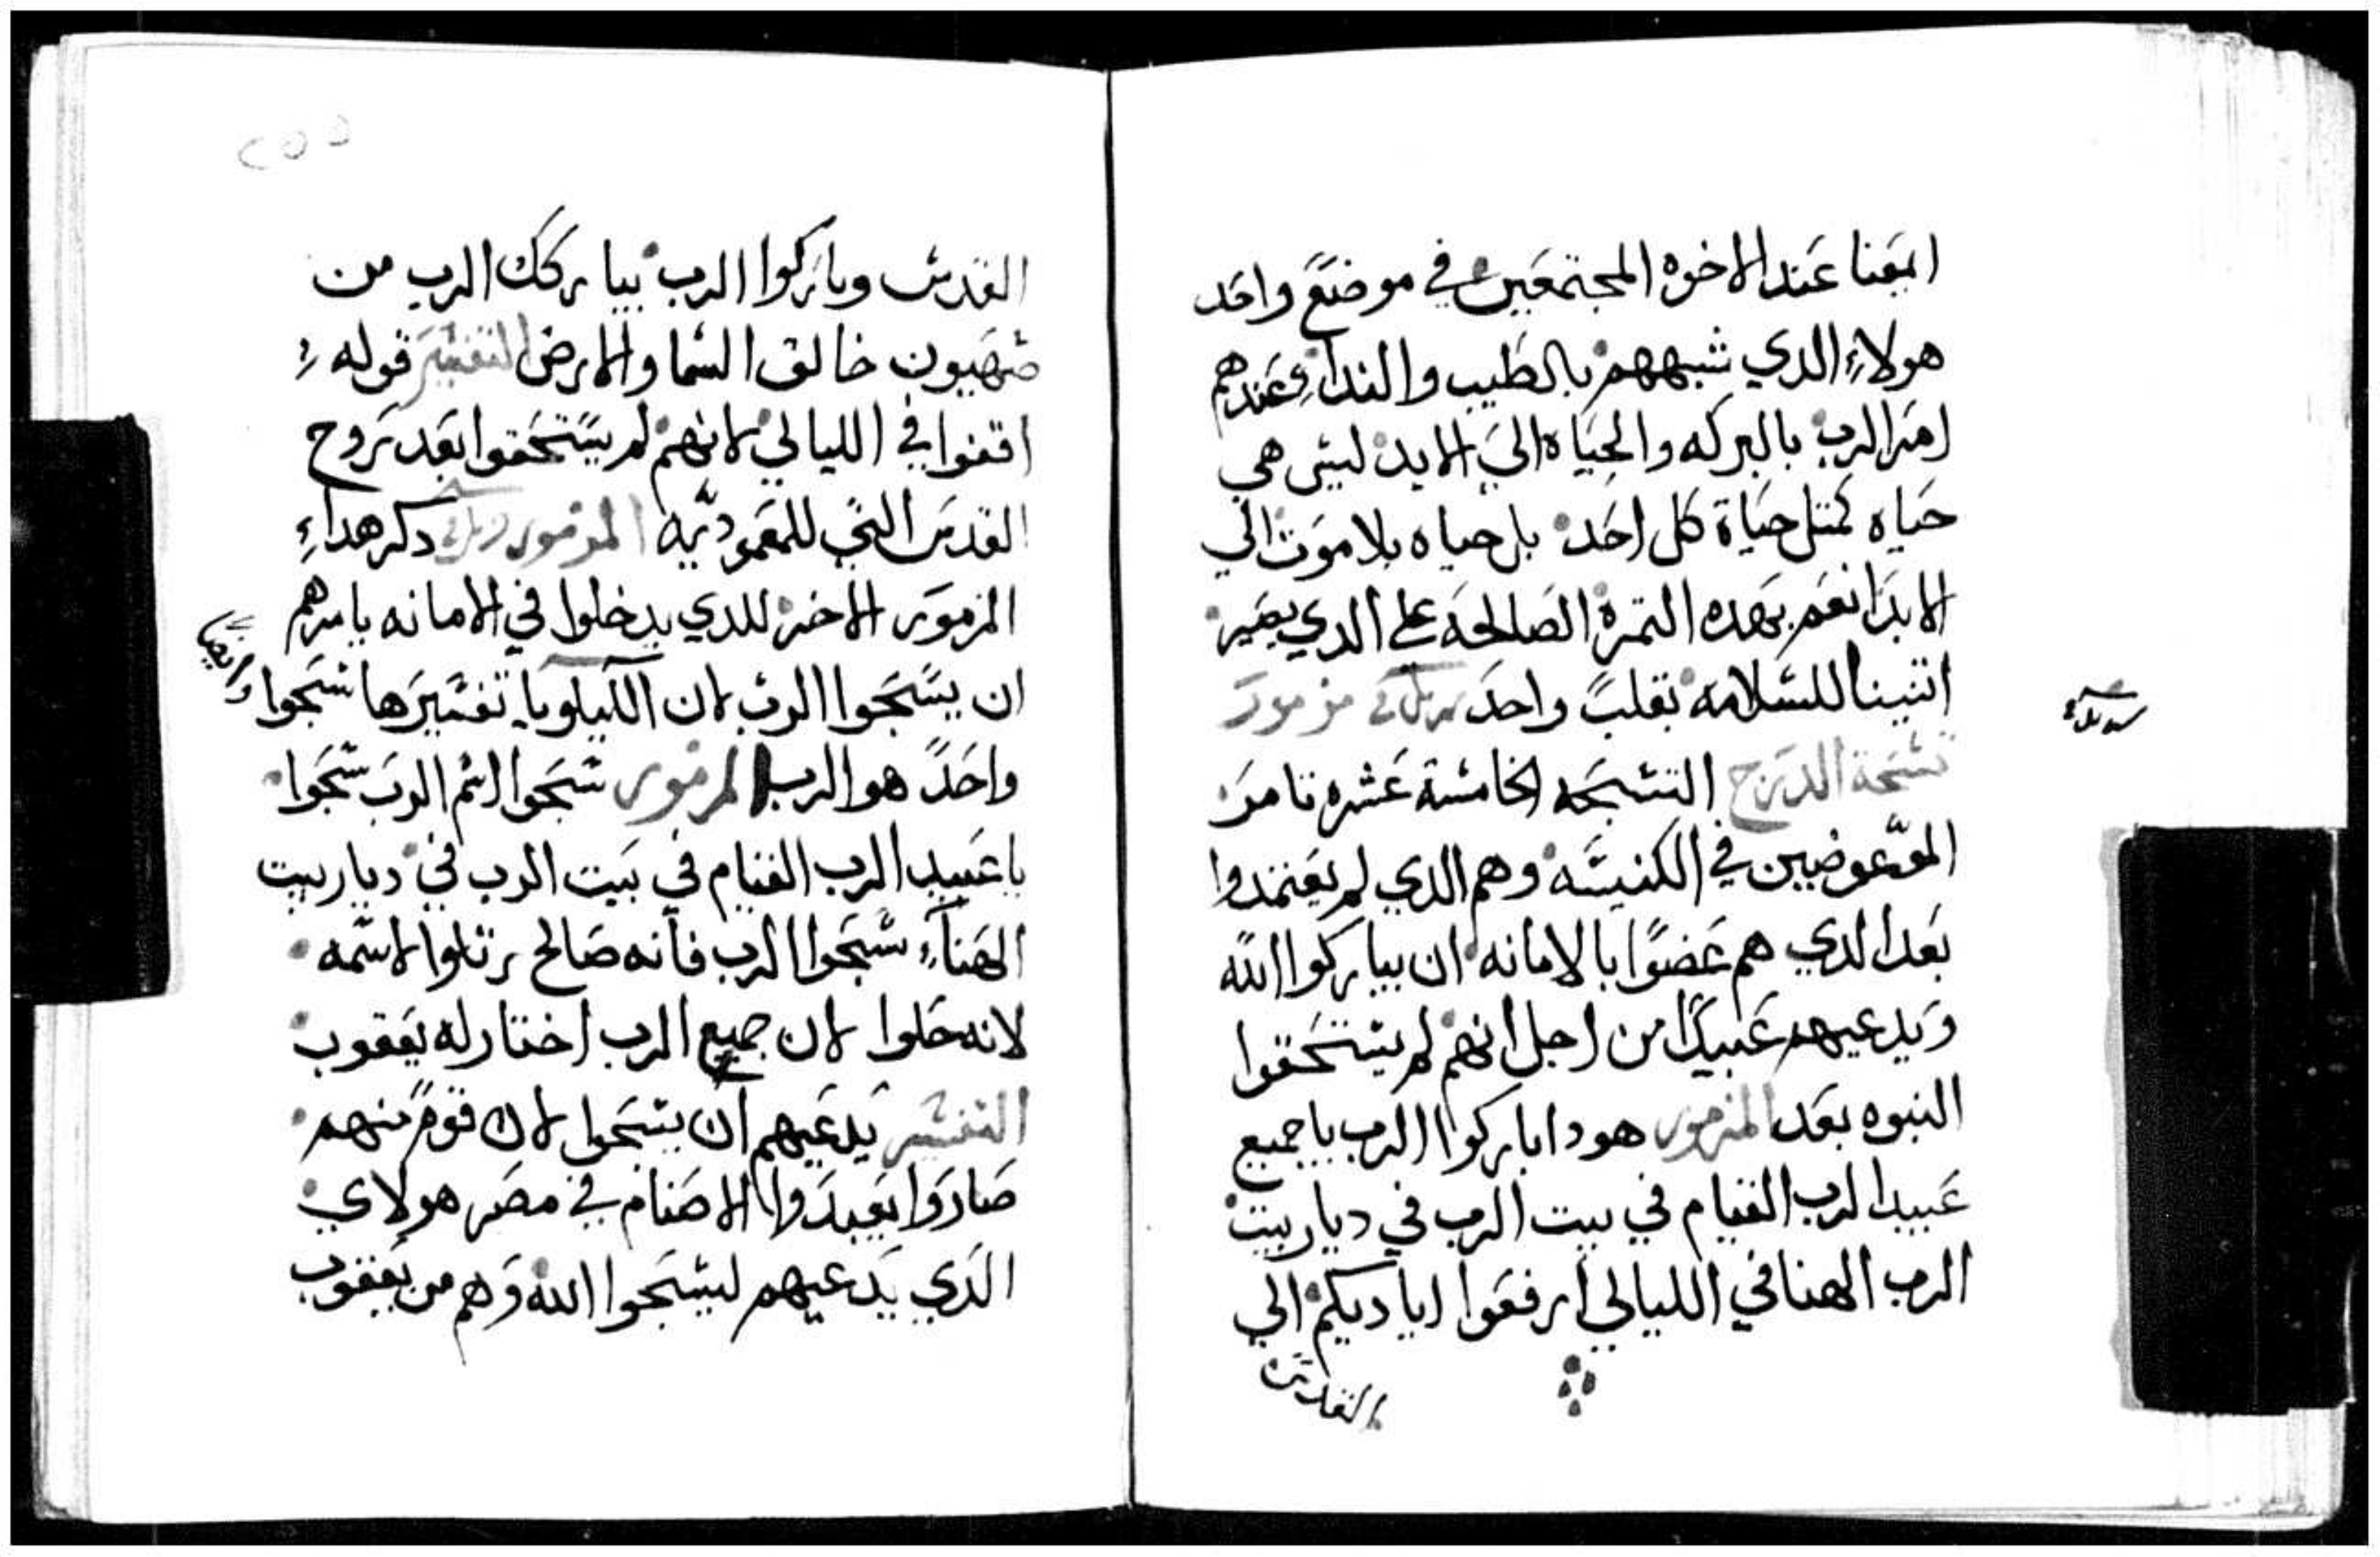 ايضا عند الاخوه المجتمعين في موضع واحد
هولاء الدي شبههم بالطيب والندا وعندهم
امر الرب بالبركه والحياه الي الابد ليس هي
حياه كمتل حياة كل احد بل حياه بلا موت الي
الابد انعم بهده التمرة الصالحه علي الدي يصير
اتنينا للسلامه بقلب واحد مزمور
تسبحة الدرج التسبحه الخامسة عشره تامر
الموعوضيين في الكنيسه وهم الدي لم يعتمدوا
بعد الدي هم عضوا بالامانه ان يباركوا الله
ويدعيهم عبيدا من اجل انهم لم يستحقوا
البنوه بعد المزمور هودا باركوا الرب يا جميع
عبيد الرب القيام في بيت الرب في ديار بيت
الرب الهنا في الليالي ارفعوا اياديكم الي
القدس
القدس وباركوا الرب يباركك الرب من
صهيون خالق السما والارض التفسير قوله
اقفوا في الليالي لانهم لم يستحقوا بعد بروح
القدس التي للمعموديه المزمور دكر هداء
المزمور الاخر للدي يدخلوا في الامانه يامرهم
ان يسبحوا الرب لان الليلويا تفسيرها سبحوا
وايضا
واحد هو الرب المزمور سبحوا اسم الرب سبحوا
يا عبيد الرب القيام في بيت الرب في ديار بيت
الهناء سبحوا الرب فانه صالح رتلوا لاسمه
لانه حلوا لان جميع الرب اختار له يعقوب
التفسير يدعيهم ان يسبحوا لان قوم منهم
صاروا يعبدوا الاصنام في مصر هولاي
الدي يدعيهم ليسبحوا الله وهم من يعقوب